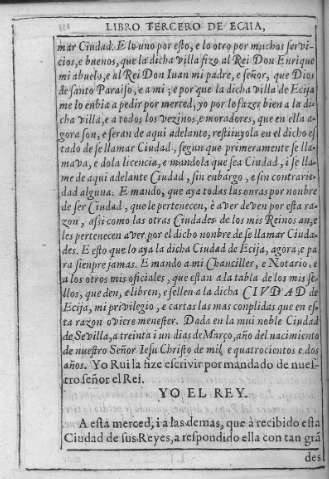 LIBRO TERCERO DE ECIJA,
mar Ciudad. E lo uno por esto, e lo otro por muchos servi
cios, e buenos, que la dicha villa fizo al Rei Don Enrique
mi abuelo, e al Rei Don Iuan mi padre, e señor, que Dios
de santo Paraiso, e a mi; e por que la dicha villa de Ecija
me lo enbia a pedir por merced, yo por les fazer bien a la di
cha villa, e a todos los vezinos, e moradores, que en ella a
gora son, e seran de aqui adelanto, restituyola en el dicho es
tado de se llamar Ciudad, segun que primeramente se lla
mava, e dola licencia, e mandola que sea Ciudad, i se lla-
me de aqui adelante Ciudad, sin enbargo, e sin contrarie
dad alguna. E mando, que aya todas las onras por nonbre
de ser Ciudad, que le pertenecen, è aver deven por esta ra
zon, assi como las otras Ciudades de los mis Reinos an, e
les pertenecen aver por el dicho nonbre de se llamar Ciuda-
des. E esto que lo aya la dicha Ciudad de Ecija, agora, e pa
ra sienpre jamas. E mando a mi Chanciller, e Notario, e
a los otros mis oficiales, que estan a la tabla de los mis se-
llos, que den, e libren, e sellen a la dicha CIUDAD de
Ecija, mi privilegio, e cartas las mas conplidas que en es-
ta razon oviere menester. Dada en la mui noble Ciudad
de Sevilla, a treinta i un dias de Março, año del nacimiento
de nuestro Señor Iesu Christo de mil, e quatrocientos e dos
años. Yo Rui la fize escrivir por mandado de nues-
tro señor el Rei.
YO EL REY.
A esta merced, i a las demas, que à recibido esta
Ciudad de sus Reyes, a respondido ella con tan grã
des